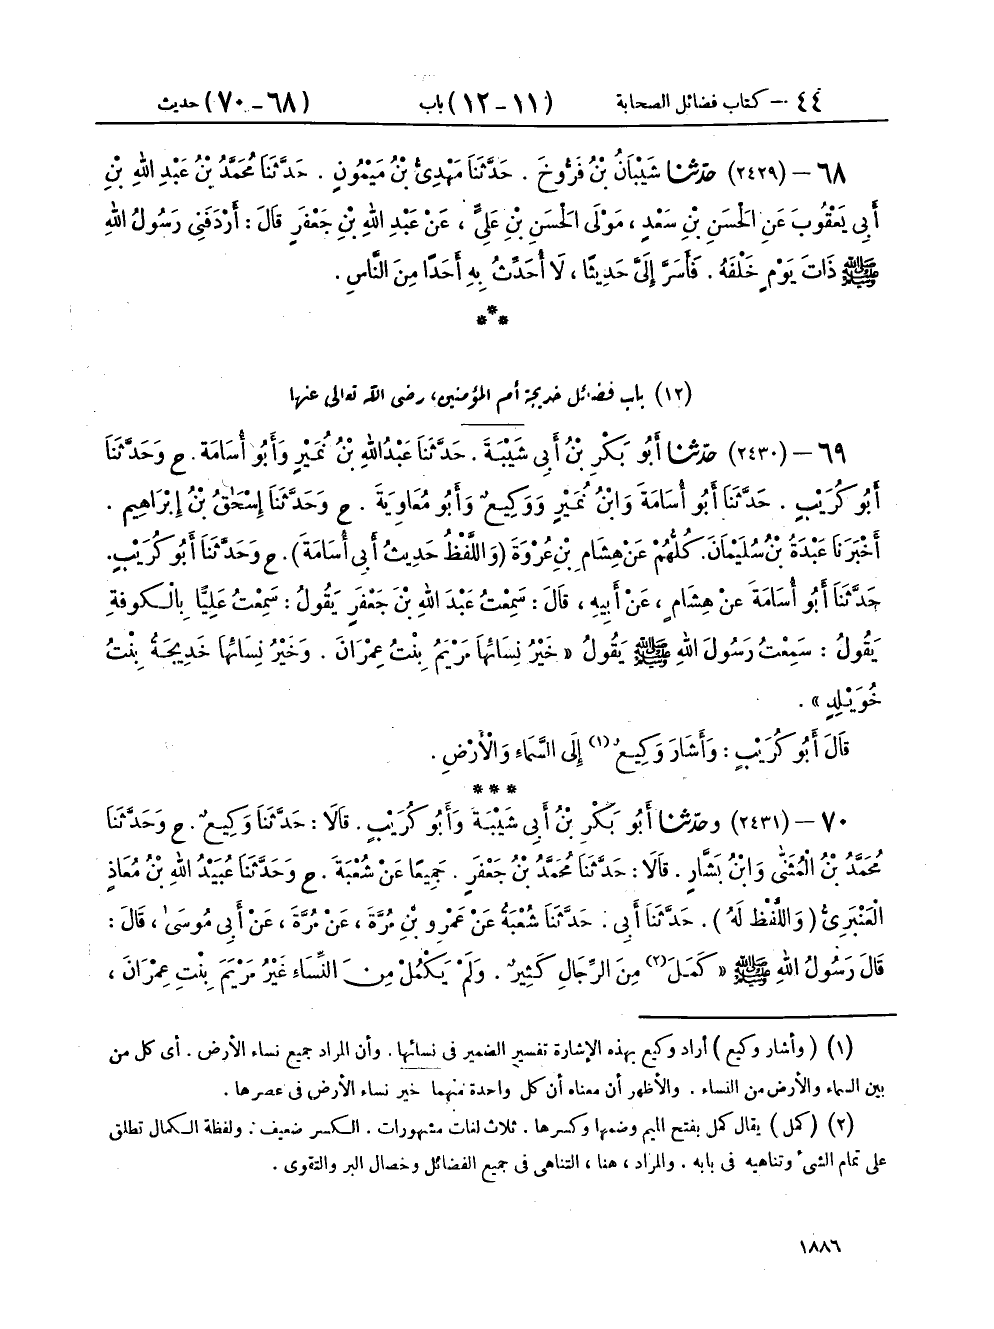 ٤٤ — كتاب فضائل الصحابة (١١ - ١٢) باب (٦٨ - ٧٠) حديث
٦٨ — (٢٤٢٩) حَدَّثَنَا شَيْبَانُ بْنُ فَرُّوخَ . حَدَّثَنَا مَهْدِىُّ بْنُ مَيْمُونٍ . حَدَّثَنَا مُحَمَّدُ بْنُ عَبْدِ اللهِ بْنِ
أَبِى يَعْقُوبَ عَنِ الْحَسَنِ بْنِ سَعْدٍ ، مَوْلَى الْحَسَنِ بْنِ عَلِىٍّ ، عَنْ عَبْدِ اللهِ بْنِ جَعْفَرٍ قَالَ : أَرْدَفَنِى رَسُولُ اللهِ
ﷺ ذَاتَ يَوْمٍ خَلْفَهُ . فَأَسَرَّ إِلَىَّ حَدِيثًا ، لَا أُحَدِّثُ بِهِ أَحَدًا مِنَ النَّاسِ .
***
(١٢) باب فضائل خديجة أم المؤمنين، رضى الله تعالى عنها
٦٩ — (٢٤٣٠) حَدَّثَنَا أَبُو بَكْرِ بْنُ أَبِى شَيْبَةَ . حَدَّثَنَا عَبْدُ اللهِ بْنُ نُمَيْرٍ وَأَبُو أُسَامَةَ . ح وَحَدَّثَنَا
أَبُو كُرَيْبٍ . حَدَّثَنَا أَبُو أُسَامَةَ وَابْنُ نُمَيْرٍ وَوَكِيعٌ وَأَبُو مُعَاوِيَةَ . ح وَحَدَّثَنَا إِسْحَٰقُ بْنُ إِبْرَاهِيمَ .
أَخْبَرَنَا عَبْدَةُ بْنُ سُلَيْمَانَ. كُلُّهُمْ عَنْ هِشَامِ بْنِ عُرْوَةَ (وَاللَّفْظُ حَدِيثُ أَبِى أُسَامَةَ) . ح وَحَدَّثَنَا أَبُو كُرَيْبٍ.
حَدَّثَنَا أَبُو أُسَامَةَ عَنْ هِشَامٍ ، عَنْ أَبِيهِ ، قَالَ : سَمِعْتُ عَبْدَ اللهِ بْنَ جَعْفَرٍ يَقُولُ : سَمِعْتُ عَلِيًّا بِالْكُوفَةِ
يَقُولُ : سَمِعْتُ رَسُولَ اللهِ ﷺ يَقُولُ « خَيْرُ نِسَائِهَا مَرْيَمُ بِنْتُ عِمْرَانَ . وَخَيْرُ نِسَائِهَا خَدِيجَةُ بِنْتُ
خُوَيْلِدٍ » .
قَالَ أَبُو كُرَيْبٍ : وَأَشَارَ وَكِيعٌ (١) إِلَى السَّمَاءِ وَالْأَرْضِ .
***
٧٠ — (٢٤٣١) وحَدَّثَنَا أَبُو بَكْرِ بْنُ أَبِى شَيْبَةَ وَأَبُو كُرَيْبٍ . قَالَا : حَدَّثَنَا وَكِيعٌ . ح وَحَدَّثَنَا
مُحَمَّدُ بْنُ الْمُثَنَّى وَابْنُ بَشَّارٍ . قَالَا : حَدَّثَنَا مُحَمَّدُ بْنُ جَعْفَرٍ . جَمِيعًا عَنْ شُعْبَةَ . ح وَحَدَّثَنَا عُبَيْدُ اللهِ بْنُ مُعَاذٍ
الْعَنْبَرِىُّ ( وَاللَّفْظُ لَهُ ) . حَدَّثَنَا أَبِى . حَدَّثَنَا شُعْبَةُ عَنْ عَمْرِو بْنِ مُرَّةَ ، عَنْ مُرَّةَ ، عَنْ أَبِى مُوسَىٰ ، قَالَ :
قَالَ رَسُولُ اللهِ ﷺ « كَمَلَ (٢) مِنَ الرِّجَالِ كَثِيرٌ . وَلَمْ يَكْمُلْ مِنَ النِّسَاءِ غَيْرُ مَرْيَمَ بِنْتِ عِمْرَانَ ،
(١) ( وأشار وكيع ) أراد وكيع بهذه الإشارة تفسير الضمير فى نسائها . وأن المراد جميع نساء الأرض . أى كل من
بين السماء والأرض من النساء . والأظهر أن معناه أن كل واحدة منهما خير نساء الأرض فى عصرها .
(٢) (كمل) يقال كمل بفتح الميم وضمها وكسرها . ثلاث لغات مشهورات . الكسر ضعيف . ولفظة الكمال تطلق
على تمام الشىء وتناهيه فى بابه . والمراد ، هنا ، التناهى فى جميع الفضائل وخصال البر والتقوى .
١٨٨٦